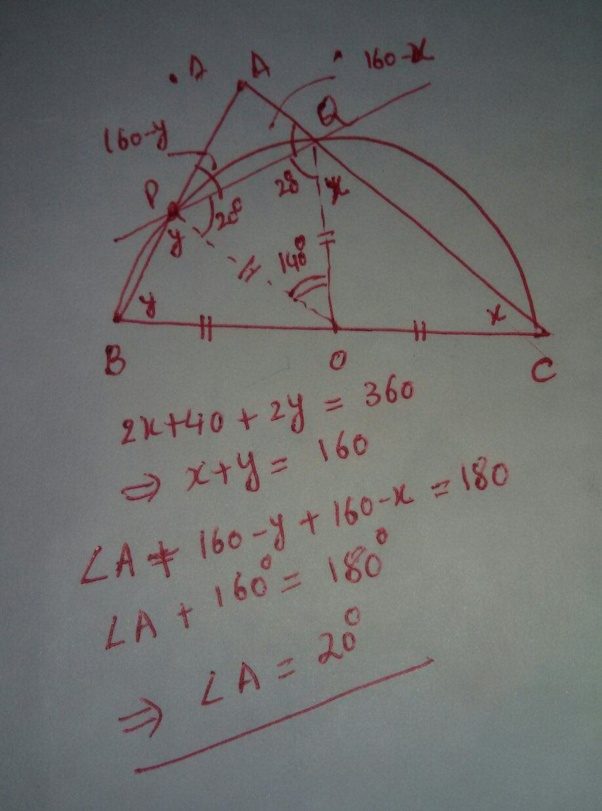 . A A 160-x
160-y Q
P 20° 20 x
y 140°
y x
B O C
2x+40+2y = 360
⇒ x+y = 160
∠A + 160-y + 160-x = 180
∠A + 160° = 180°
⇒ ∠A = 20°